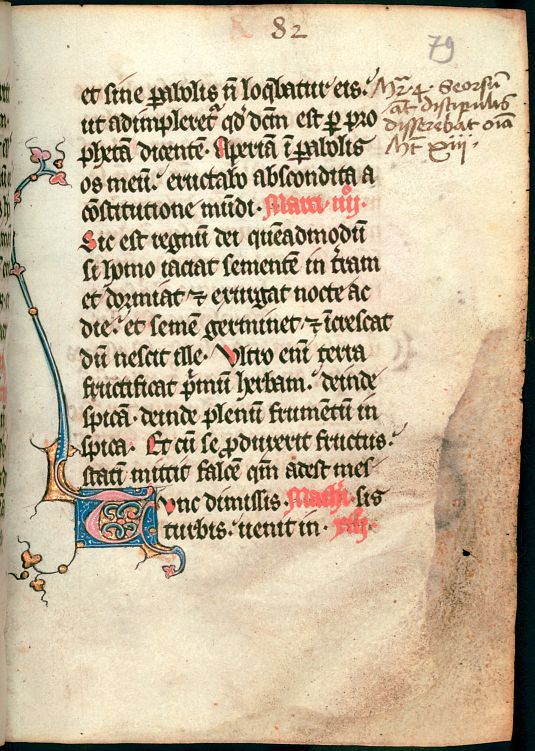 82
79
et sine ꝑabolis n̄ loq̄batur eis.
ut adimpleret᷑ qd̄ dc̄m est ꝑ pro
phetā dicentē. Aperiā ī ꝑabolis
os meū. eructabo abscondita a
cōstitutione mūdi. Marci. iiij.
Sic est regnū dei quēadmodū
si homo iactat sementē in t̄ram
et dormiat ⁊ exurgat nocte ac
die. et semē germinet ⁊ īcrescat
dū nescit ille. Ultro eni᷑ terra
fructificat p̄mū herbam. deinde
spicā. deinde plenū frumētū in
spica. Et cū se ꝓduxerit fructus.
statī mittit falcē qm̄ adest mes
Tunc dimissis. Mathi. sis
turbis. uenit in. xiij.
Mr̄. 4. Seorsū
at̄ discipulis
disserebat oīa
Mt xiij.